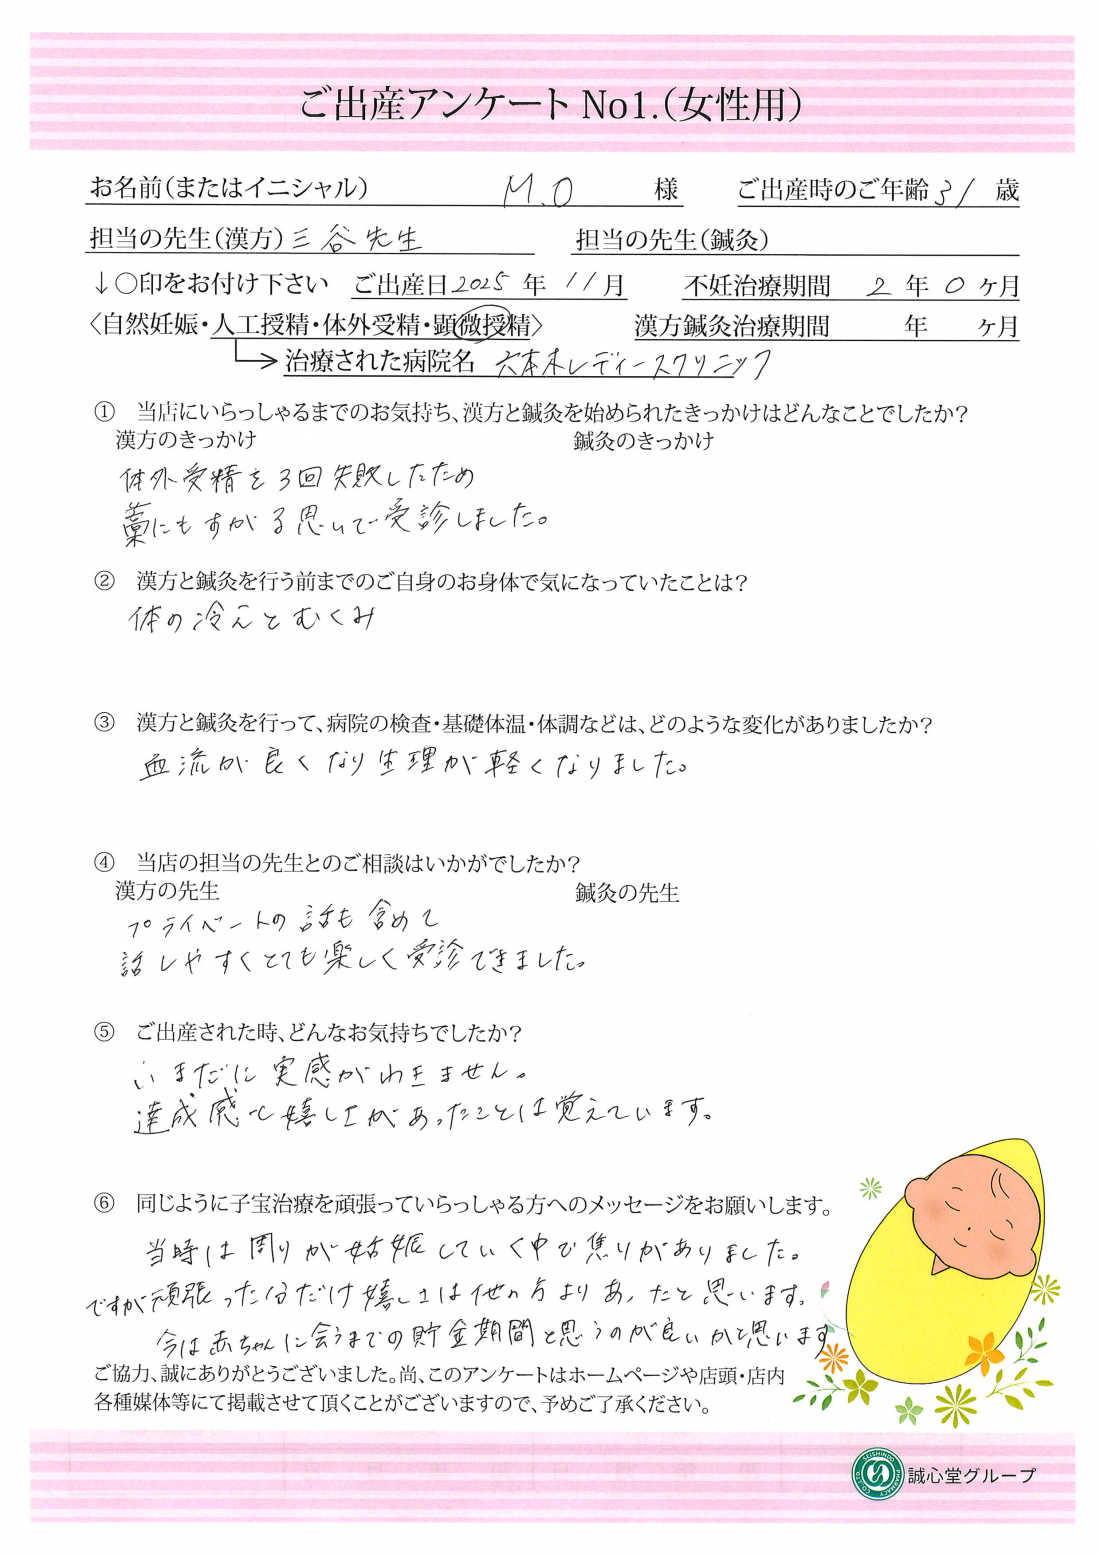 ご出産アンケート No1.(女性用)
お名前(またはイニシャル) M.O 様 ご出産時のご年齢 31 歳
担当の先生(漢方) 三谷先生 担当の先生(鍼灸)
↓○印をお付け下さい ご出産日 2025 年 11 月 不妊治療期間 2 年 0 ヶ月
〈自然妊娠・人工授精・体外受精・顕微授精〉 漢方鍼灸治療期間 年 ヶ月
治療された病院名 六本木レディースクリニック
① 当店にいらっしゃるまでのお気持ち、漢方と鍼灸を始められたきっかけはどんなことでしたか?
漢方のきっかけ 鍼灸のきっかけ
体外受精を3回失敗したため
藁にもすがる思いで受診しました。
② 漢方と鍼灸を行う前までのご自身のお身体で気になっていたことは?
体の冷えとむくみ
③ 漢方と鍼灸を行って、病院の検査・基礎体温・体調などは、どのような変化がありましたか?
血流が良くなり生理が軽くなりました。
④ 当店の担当の先生とのご相談はいかがでしたか?
漢方の先生 鍼灸の先生
プライベートの話も含めて
話しやすくとても楽しく受診できました。
⑤ ご出産された時、どんなお気持ちでしたか?
いまだに実感がわきません。
達成感と嬉しさがあったことは覚えています。
⑥ 同じように子宝治療を頑張っていらっしゃる方へのメッセージをお願いします。
当時は周りが妊娠していく中で焦りがありました。
ですが頑張った分だけ嬉しさは他の方よりあったと思います。
今は赤ちゃんに会うまでの貯金期間と思うのが良いかと思います
ご協力、誠にありがとうございました。尚、このアンケートはホームページや店頭・店内
各種媒体等にて掲載させて頂くことがございますので、予めご了承ください。
SEISHINDO PHARMACY CO.LTD 誠心堂グループ